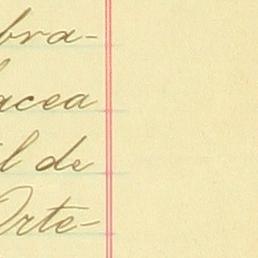 bra-
acea
l de
Orte-